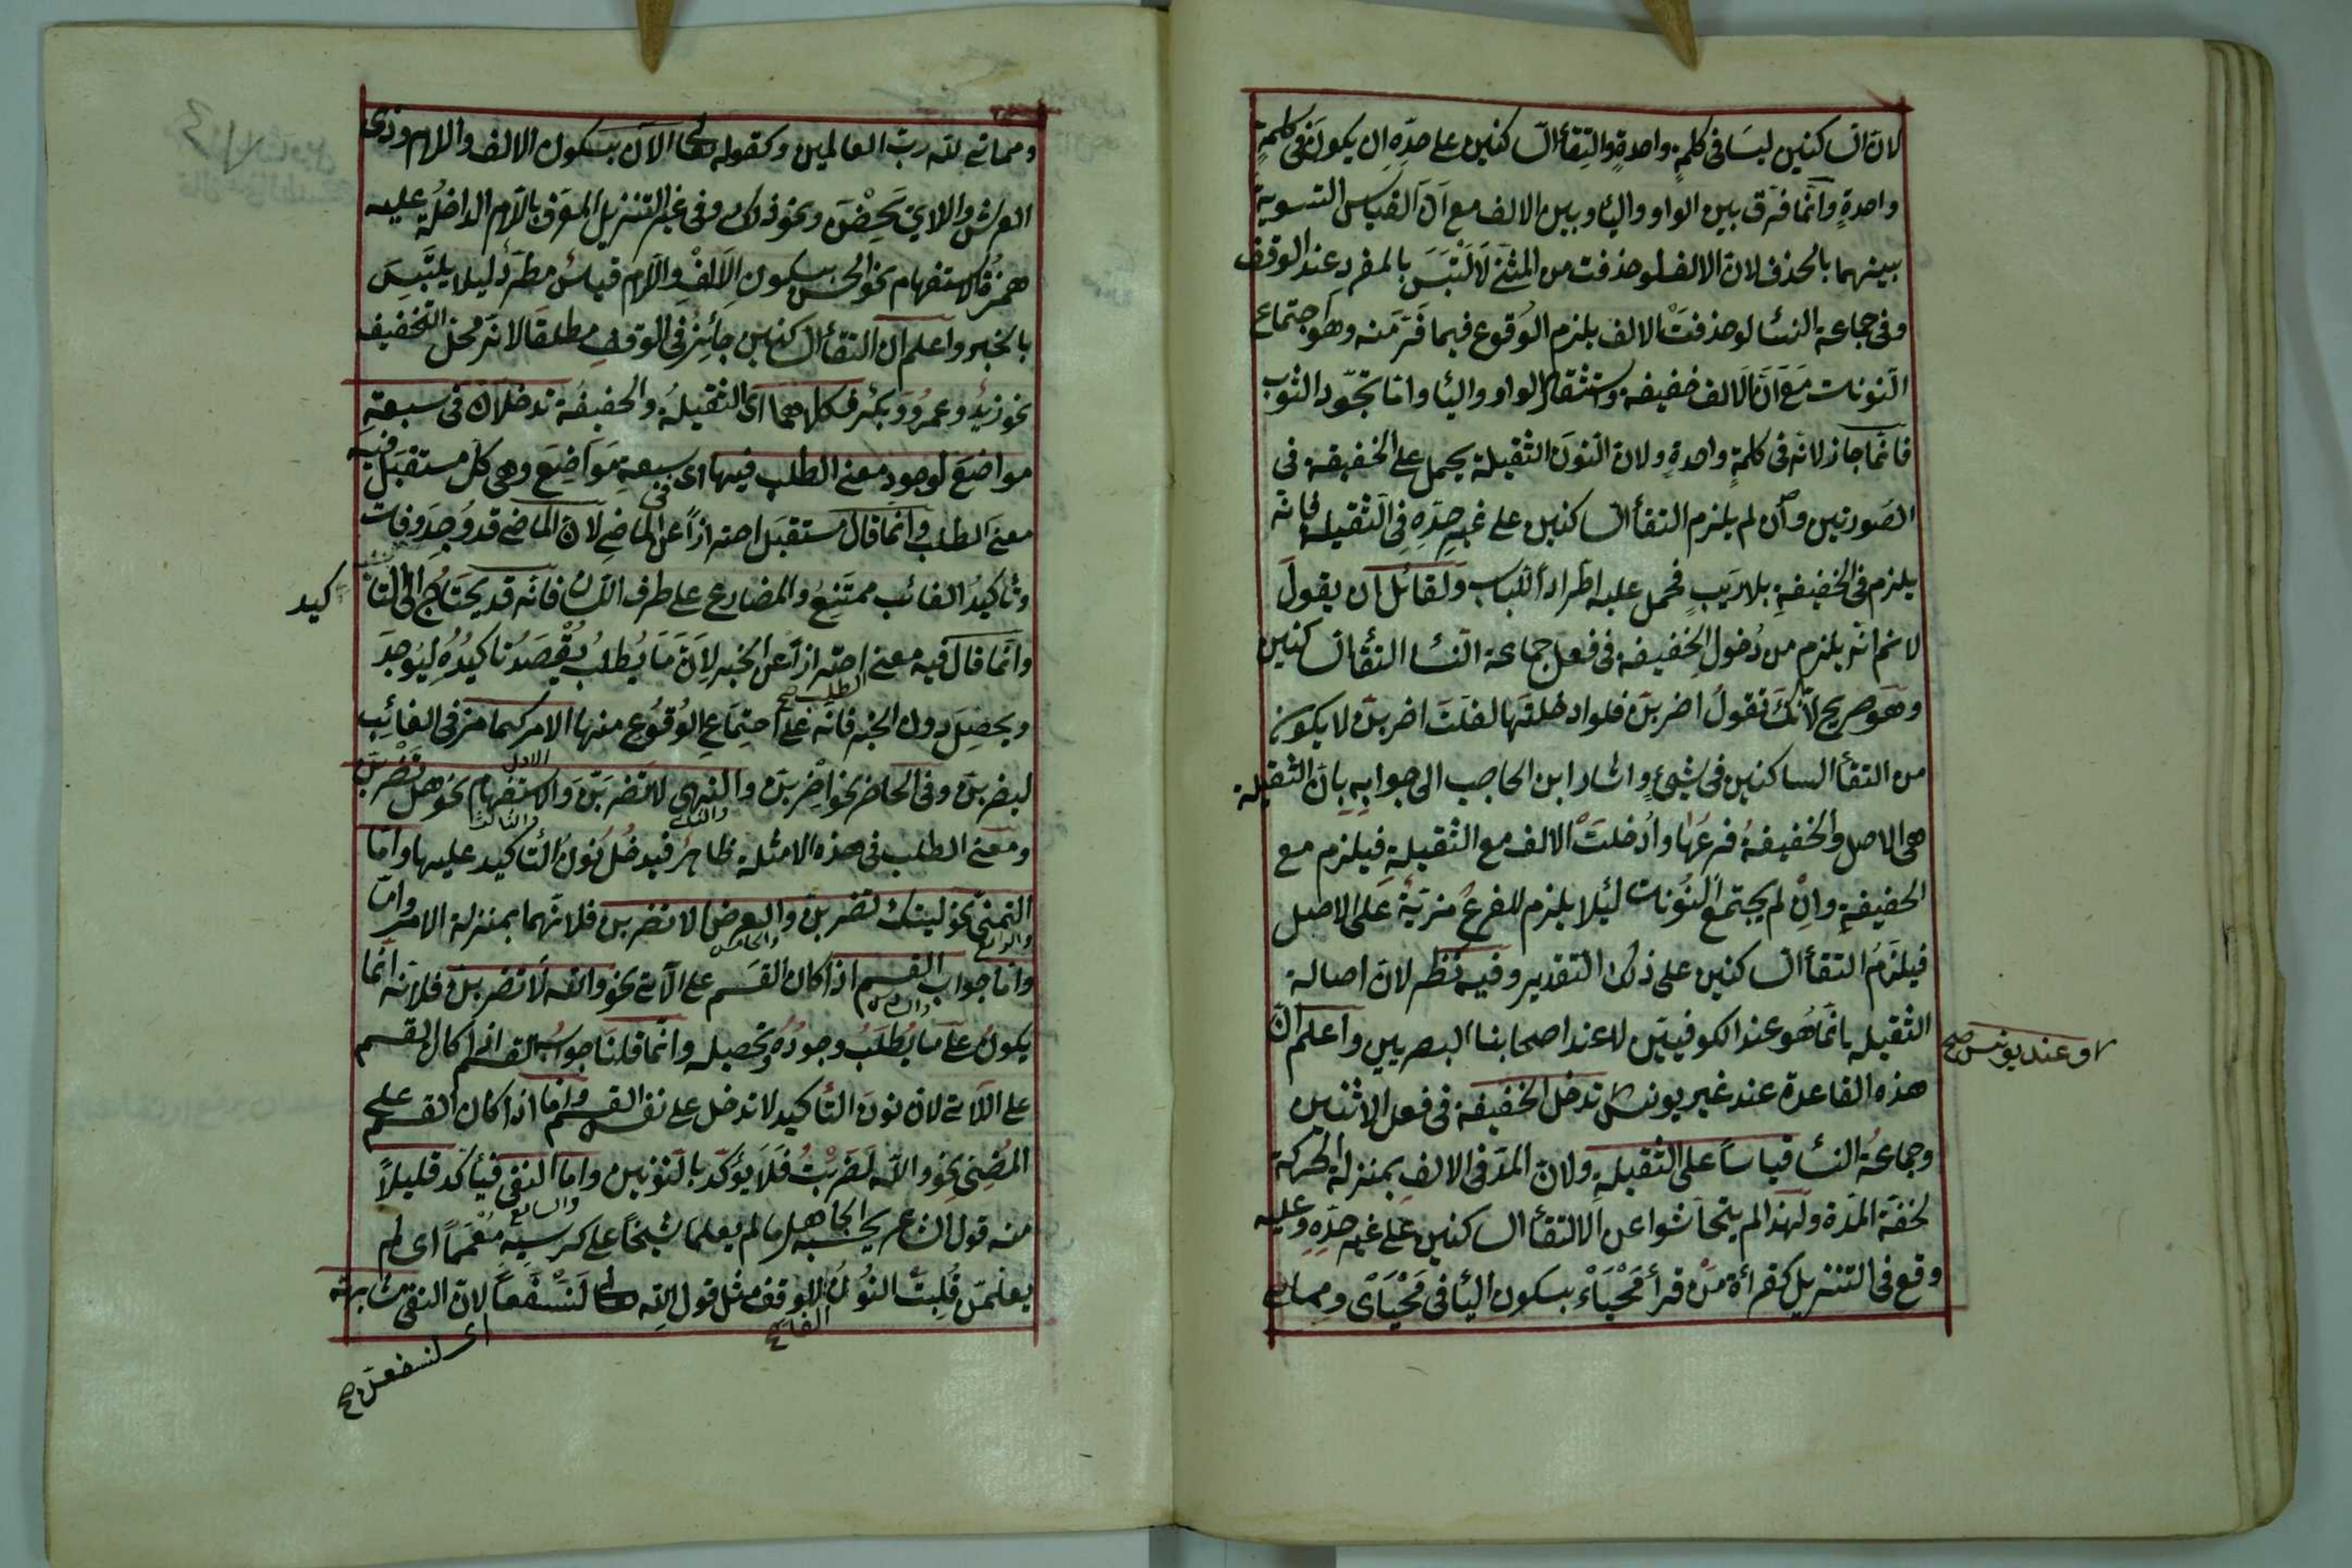 لان الساكنين ليسا فى كلمةٍ واحدةٍ والتقأ الساكنين على حدّه ان يكونا فى كلمةٍ
واحدةٍ وانّما فرق بين الواو واليأ وبين الالف مع انّ القياس التسوية
بينهما بالحذف لانّ الالف لو حذفت من المثنّى لَالتَبَسَ بالمفردِ عند الوقف
وفى جماعة النسأ لو حذفت الالف يلزم الوُقوع فيما فرّ منه وهو اجتماع
النونات مَعَ انّ الالف خفيفة واستثقال الواو واليأ وامّا تجوّد الثوب
فانّما جاز لانّه فى كلمةٍ واحدةٍ ولان النّونَ الثقيلة يحمل على الخفيفة فى
الصورتين وان لم يلزم التقأ الساكنين على غير حدّهِ فى الثقيلة فانّه
يلزم فى الخفيفةِ بلا رَيبٍ فحمل عليه اطّراداً للباب ولقائل ان يقول
لا نم انّه يلزم من دُخول الخفيفة فى فعل جماعة النسأ التقأ الساكنين
وهو صريح لانّك تقولُ اضربنّ فلو ادخلتَها لقلتَ اضربنّ لا يكون
من التقأ الساكنين فى شئٍ واشار ابن الحاجب الى جوابِهِ بانّ الثقيلة
هى الاصل والخفيفةُ فرعُها وأدخلت الالف مع الثقيلة فيلزم مع
الخفيفةِ وان لم يجتمع النُونات لئِلّا يلزم للفرع مزيّة على الاصل
فيلزمُ التقأ الساكنين على ذلك التقدير وفيه نظر لانّ اصالة
الثقيلة انّما هو عند الكوفيّين لا عند اصحابنا البصريين واعلم انّ
هذه القاعدة عند غير يونس تدخل الخفيفة فى فعل الاثنين
او عند يونس صح
وجماعة النسأ قياساً على الثقيلةِ ولانّ المدّ فى الالف بمنزلة الحركة
لخفّة المدّة ولهذا لم يتحاشوا عن الالتقأ الساكنين على غير حدّهِ وعليه
وقع فى التنزيل كقرأة مَنْ قرأ مَحْيَاىْ بسكون اليأ فى مَحْيَاىْ ومماتى
ومماتى للّه ربّ العالمين وكقوله تعالى الآن بسكون الالف واللام وذى
العرش واللاىْ يَحِضْنَ ونحو ذلك وفى غير التنزيل المعرّف باللام الداخلة عليه
همزة الاستفهام نحو الحسن بسكون الالفِ واللّام قياسٌ مطّرد ليلا يلتَبِسَ
بالخبر واعلم ان التقأ الساكنين جائِزٌ فى الوقف مطلقا لانّه محلّ التخفيف
نحو زيدْ وعمروْ وبكرْ وكلاهما اى الثقيلة والخفيفة تدخلان فى سبعة
مواضعَ لوجود معنى الطلب فيها اى فى سبعةِ مَوَاضِعَ وهى كل مستقبَل فيه
معنى الطلب وانما قال مستقبَل احترازاً عن الماضى لانّ الماضى قد وُجِدَ وفات
وتاكيدُ الفائت ممتنِعٌ والمضارع على طرف اللّسان فانّه قد يحتاج الى التا
كيد
وانّما قال فيه معنى الطلب صح احترازاً عن الخبر لِاَنّ مَا يُطلبُ يُقْصَدُ تاكيدُهُ لِيُوجدَ
ويحصِل دون الخبر فانّه على احتمَاعِ الوُقُوع منها الامر كما مرّ فى الغائِب
ليضربنّ وفى الحاضر نحو اضْربنّ والنهى لا تضربَنّ والاستفهام نحو هل تضربن
الاول والثانى والثالث
ومعنى الطلب فى هذه الامثلة ظاهرٌ فيدخُلُ نُونُ التأكيد عليها وامّا
التمنّى نحو ليتك تضربنّ والعرض الا تضربن فلانّهما بمنزلة الامر وامّا
والرابع والخامس
وامّا جواب القسم اذا كان القسم على الآتى نحو والله لاتضربنّ فلانّه انّما
والسادس
يكونُ على مَا يُطلَبُ وجودُهُ وتحصيله وانّما قلنا جواب القسم اذا كان القسم
على الآتى لان نون التأكيد لا تدخل على نفس القسم وامّا اذا كان القسم على
المُضِىّ نحو واللّه لضربْتُ فَلَا يؤكّد بالنّونين وامّا النفى فيأكّد قليلاً
والسابع
منه قول الشاعر يحسبه الجاهل ما لم يعلما شيخاً على كرسيّهِ مُعَمّماً اى لم
يعلَمنْ قُلِبَتْ النُونُ للوقف مثل قول الله تعالى لَنَسْفَعاً لانّ النفى مشابهة
الفا صح
اى لنسفعن صح